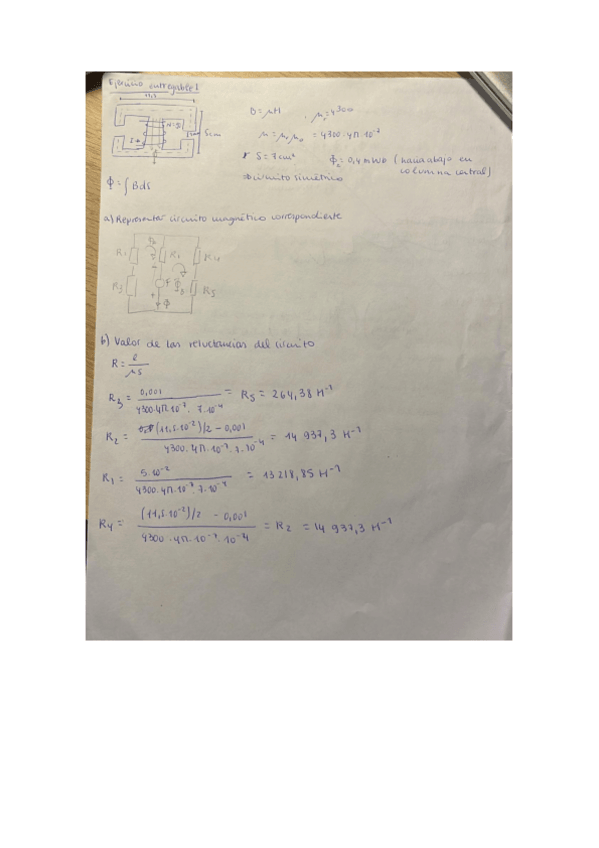 Ejercicio entregable 1
11,5
5cm
B = μH , μr = 4300
μ = μr μ0 = 4300·4π·10⁻⁷
S = 7cm²
Φ = 0,4 mWb (hacia abajo en columna central)
⇒ circuito simétrico
Φ = ∫ B dS
a) Representar circuito magnético correspondiente
R1
R3
R5
f
Φ
b) Valor de las reluctancias del circuito
R = l / μS
R3 = 0,001 / 4300·4π·10⁻⁷·7·10⁻⁴ = R5 = 264,38 H⁻¹
R2 = (11,5·10⁻²)/2 - 0,001 / 4300·4π·10⁻⁷·7·10⁻⁴ = 14 937,3 H⁻¹
R1 = 5·10⁻² / 4300·4π·10⁻⁷·7·10⁻⁴ = 13 218,85 H⁻¹
R4 = (11,5·10⁻²)/2 - 0,001 / 4300·4π·10⁻⁷·10⁻⁴ = R2 = 14 937,3 H⁻¹